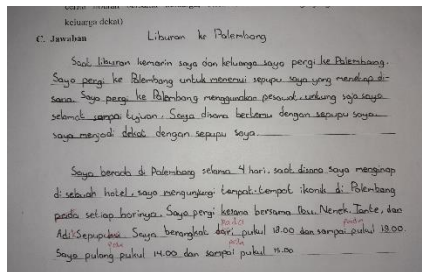 keluarga dekat)
C. Jawaban
Liburan ke Palembang
Saat liburan kemarin saya dan keluarga saya pergi ke Palembang.
Saya pergi ke Plembang untuk menemui sepupu saya yang menetap di-
sana. Saya pergi ke Palembang menggunakan pesawat, untung saja saya
selamat sampai tujuan. Saya disana bertemu dengan sepupu saya
saya menjadi dekat dengan sepupu saya.
Saya berada di Palembang selama 4 hari, saat disana saya menginap
di sebuah hotel, saya mengunjungi tempat-tempat ikonik di Palembang
pada setiap harinya. Saya pergi kesana bersama Ibu, Nenek, Tante, dan
pada pada
Adik Sepupuku. Saya berangkat dari pukul 13.00 dan sampai pukul 19.00.
pada pada
Saya pulang pukul 14.00 dan sampai pukul 15.00